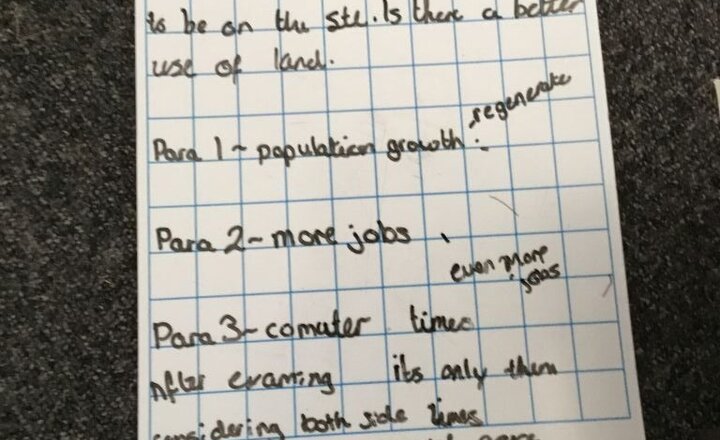 to be on the site. Is there a better
use of land.
regenerate
Para 1 ~ population growth :-
Para 2 - more jobs
even more
jobs
Para 3 - comuter times
After examing its only them
considering both side times